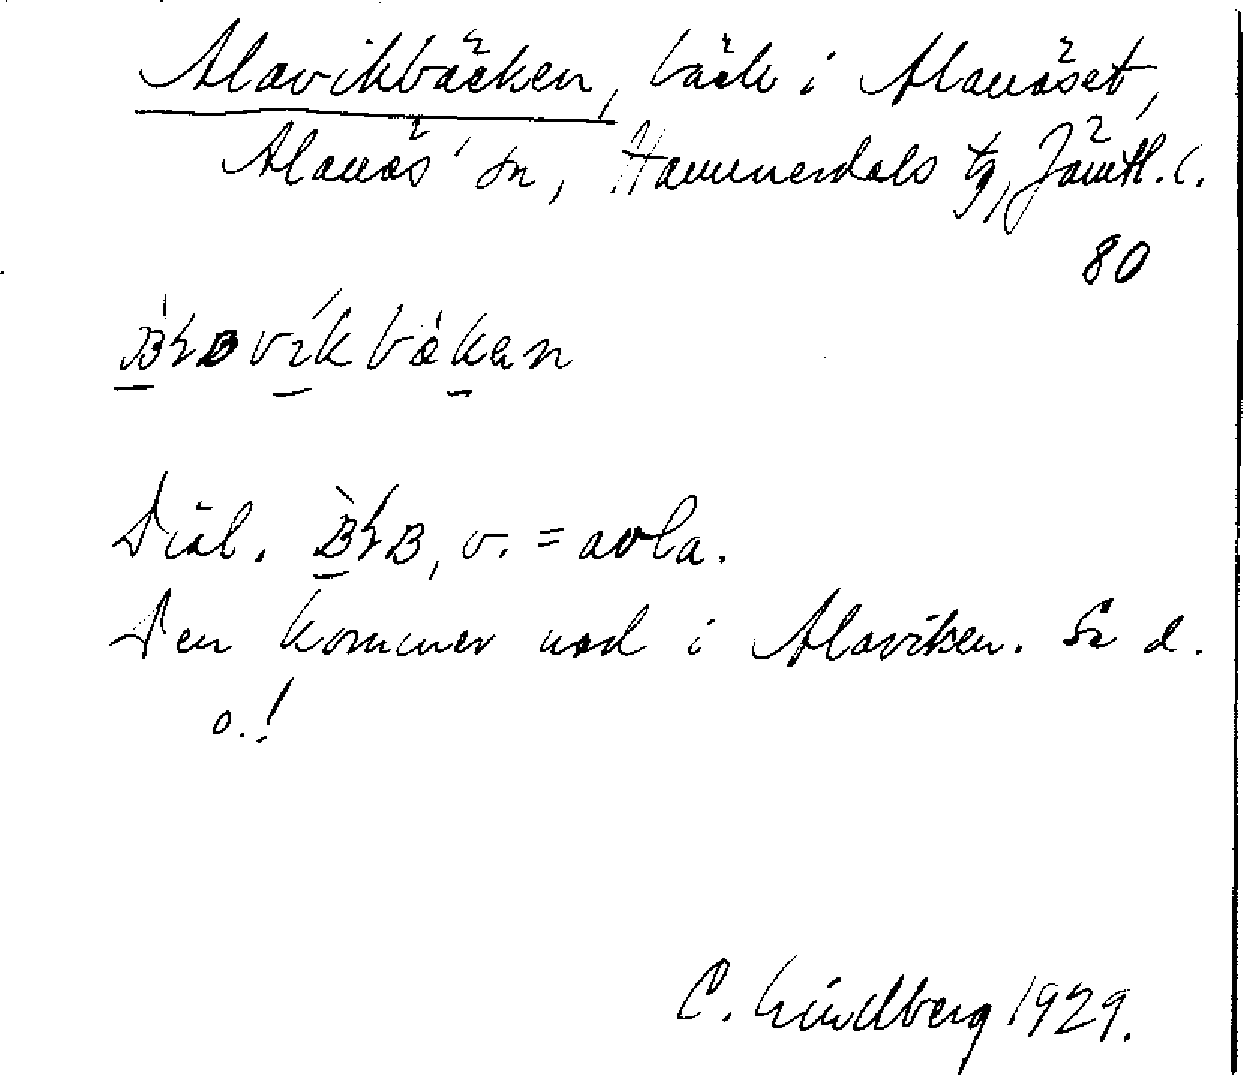 Alavikbäcken, bäck i Alanäset,
Alanäs' sn, Hammerdals tg, Jämtl. l.
80
Dial. v. = avla.
Den kommer ned i Alaviken. Se d.
o.!
C. Lindberg 1929.